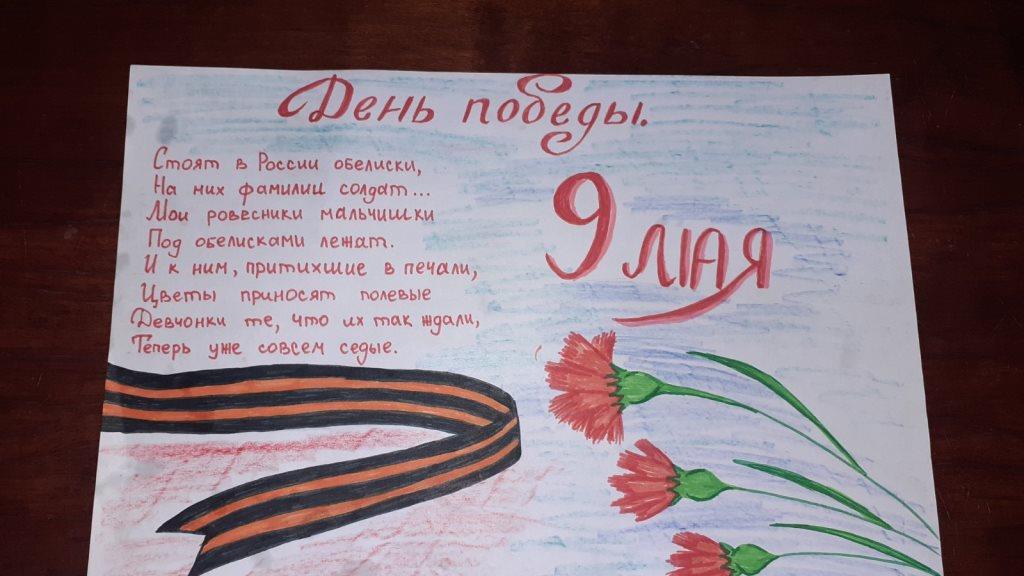 День победы.
Стоят в России обелиски,
На них фамилии солдат...
Мои ровесники мальчишки
Под обелисками лежат.
И к ним, притихшие в печали,
Цветы приносят полевые
Девчонки те, что их так ждали,
Теперь уже совсем седые.
9 мая